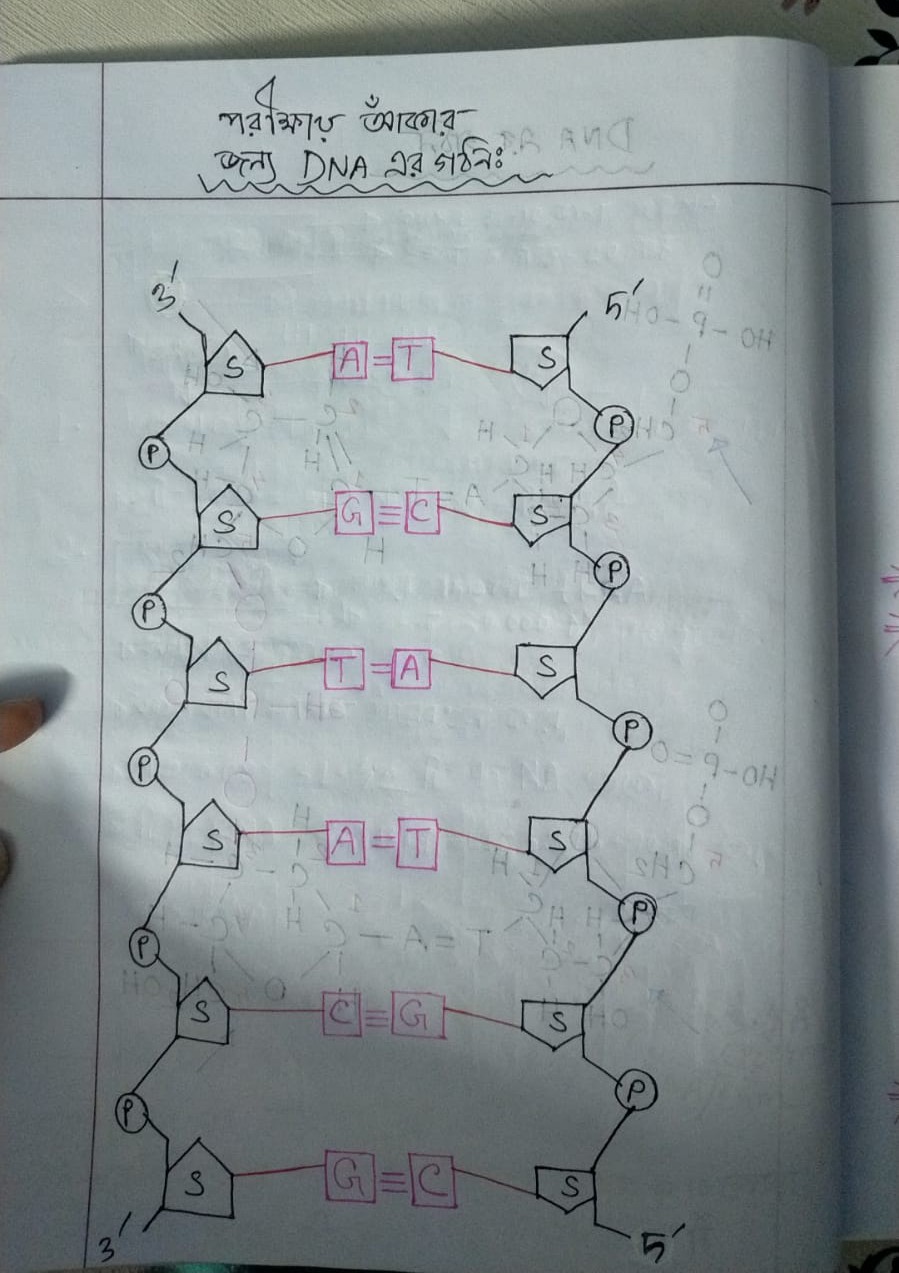 পরীক্ষায় আঁকার
জন্য DNA এর গঠনঃ
3′ 5′
S A=T S
P P
S G≡C S
P P
S T=A S
P P
S A=T S
P P
S C≡G S
P P
S G≡C S
3′ 5′